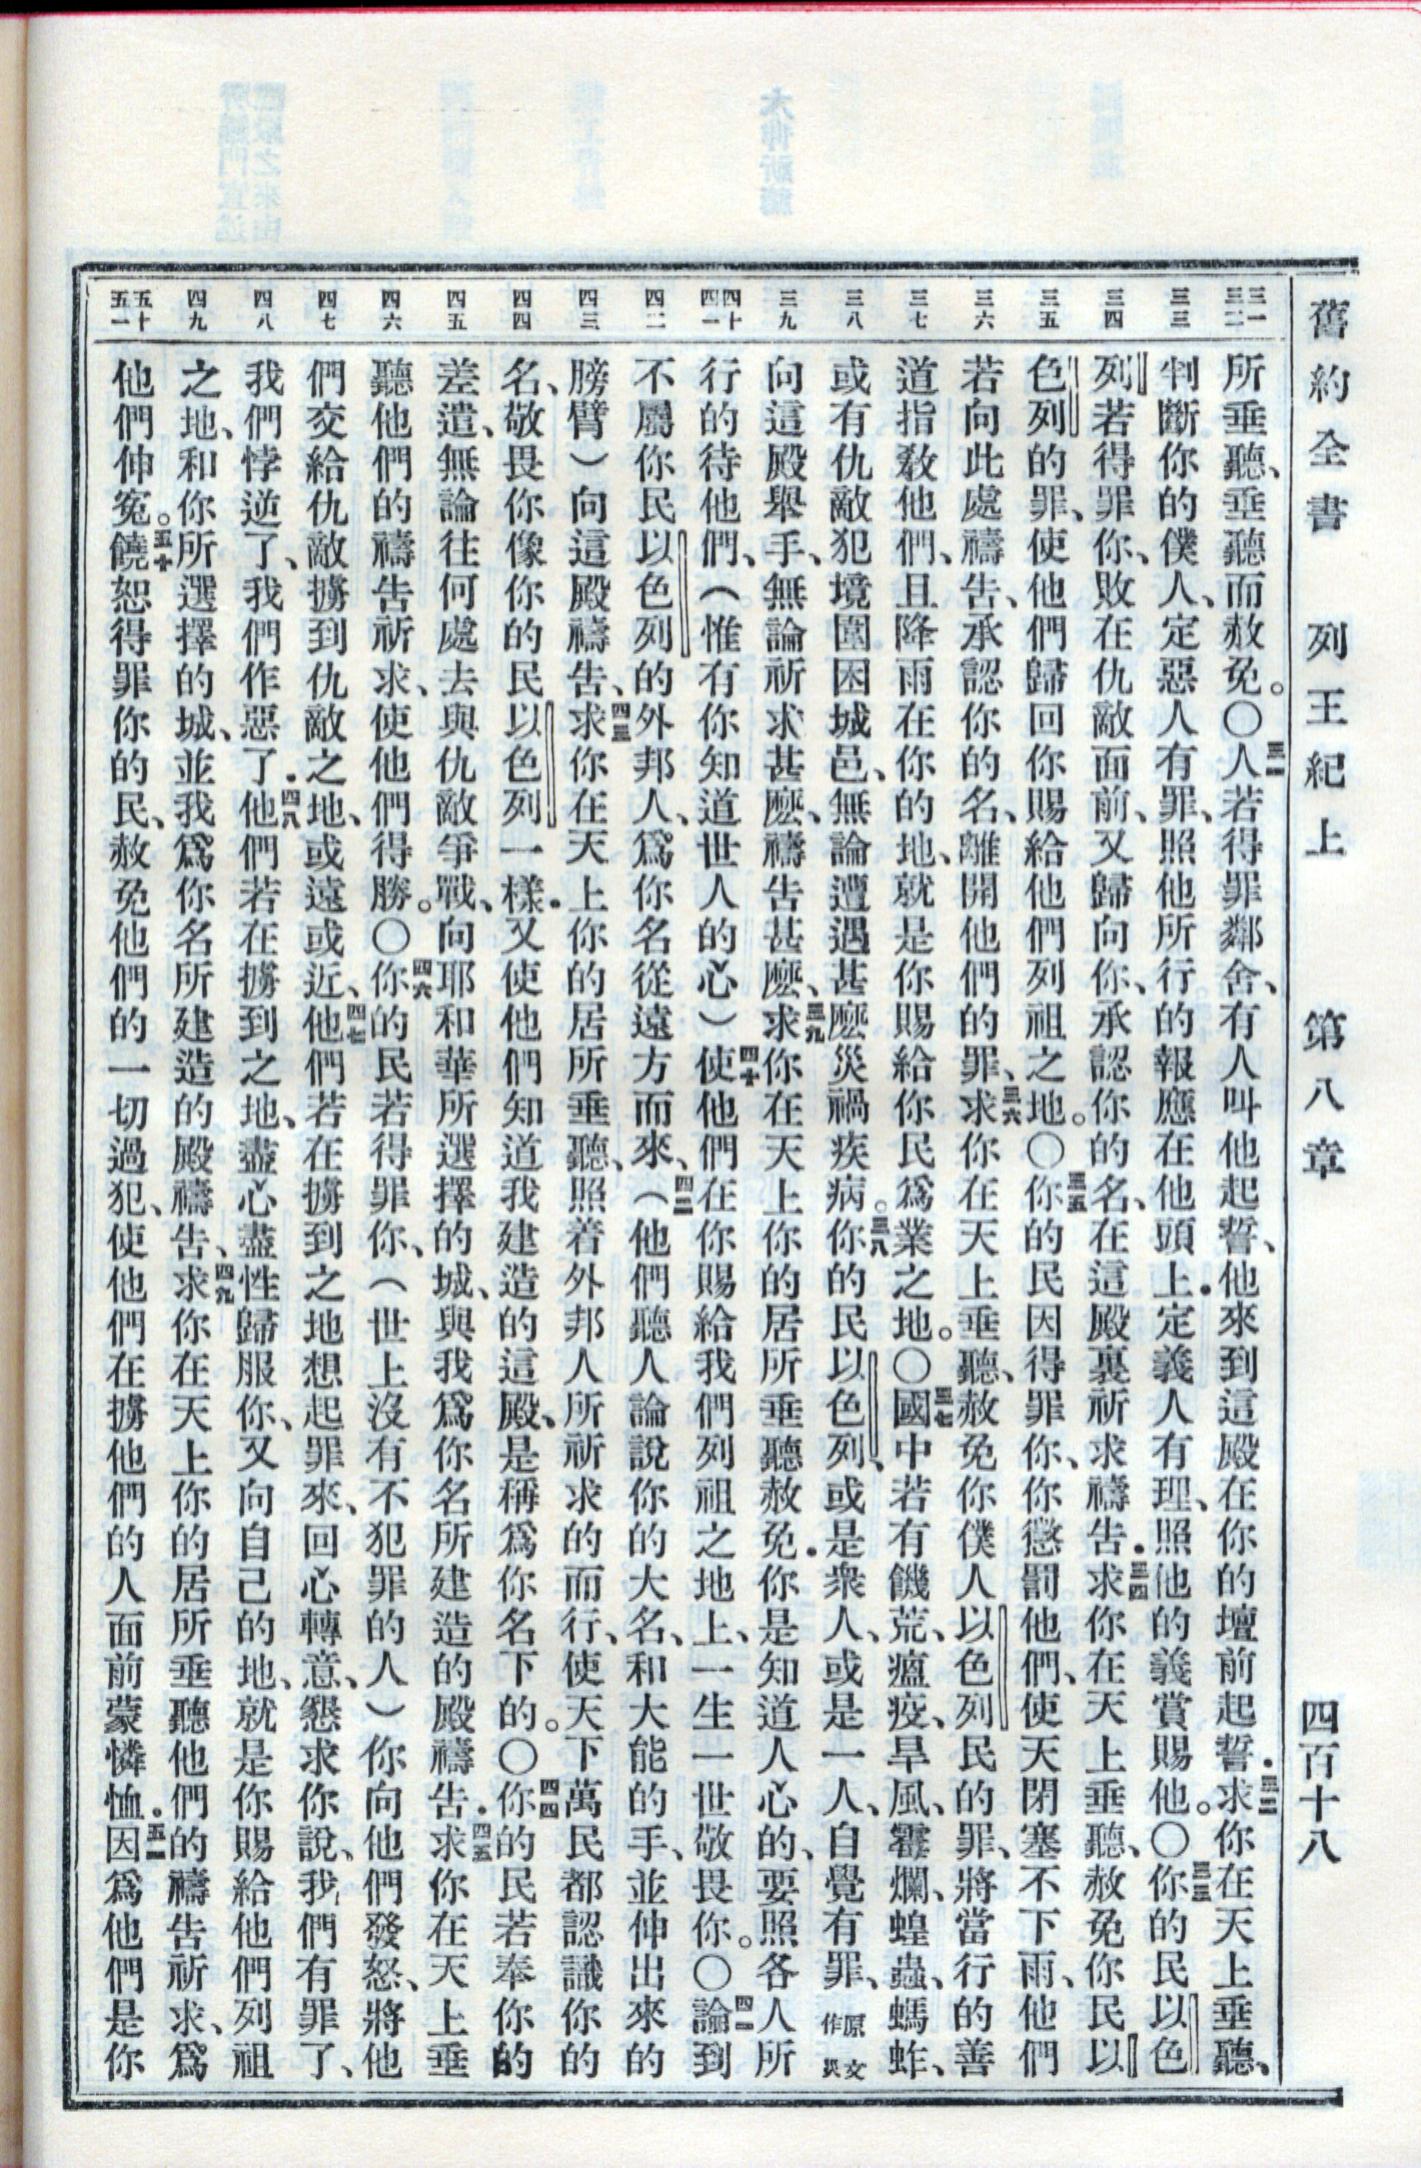 舊約全書 列王紀上 第八章 四百十八
三一 三二 三三 三四 三五 三六 三七 三八 三九 四十 四一 四二 四三 四四 四五 四六 四七 四八 四九 五十 五一
所垂聽、垂聽而赦免。〇三一人若得罪鄰舍、有人叫他起誓、他來到這殿在你的壇前起誓．三二求你在天上垂聽、
判斷你的僕人、定惡人有罪、照他所行的報應在他頭上．定義人有理、照他的義賞賜他。〇三三你的民以色
列若得罪你、敗在仇敵面前、又歸向你、承認你的名、在這殿裏祈求禱告．三四求你在天上垂聽、赦免你民以
色列的罪、使他們歸回你賜給他們列祖之地。〇三五你的民因得罪你、你懲罰他們、使天閉塞不下雨、他們
若向此處禱告、承認你的名、離開他們的罪、三六求你在天上垂聽、赦免你僕人以色列民的罪、將當行的善
道指敎他們、且降雨在你的地、就是你賜給你民爲業之地。〇三七國中若有饑荒、瘟疫、旱風、霉爛、蝗蟲、螞蚱、
或有仇敵犯境圍困城邑、無論遭遇甚麼災禍疾病。三八你的民以色列、或是衆人、或是一人、自覺有罪、原文作災
向這殿舉手、無論祈求甚麼、禱告甚麼、三九求你在天上你的居所垂聽赦免．你是知道人心的、要照各人所
行的待他們、（惟有你知道世人的心）四十使他們在你賜給我們列祖之地上、一生一世敬畏你。〇四一論到
不屬你民以色列的外邦人、爲你名從遠方而來、四二（他們聽人論說你的大名、和大能的手、並伸出來的
膀臂）向這殿禱告、四三求你在天上你的居所垂聽、照着外邦人所祈求的而行、使天下萬民都認識你的
名、敬畏你像你的民以色列一樣．又使他們知道我建造的這殿、是稱爲你名下的。〇四四你的民若奉你的
差遣、無論往何處去與仇敵爭戰、向耶和華所選擇的城、與我爲你名所建造的殿禱告．四五求你在天上垂
聽他們的禱告祈求、使他們得勝。〇四六你的民若得罪你、（世上沒有不犯罪的人）你向他們發怒、將他
們交給仇敵擄到仇敵之地、或遠或近、四七他們若在擄到之地想起罪來、回心轉意、懇求你說、我們有罪了、
我們悖逆了、我們作惡了．四八他們若在擄到之地、盡心盡性歸服你、又向自己的地、就是你賜給他們列祖
之地、和你所選擇的城、並我爲你名所建造的殿禱告、四九求你在天上你的居所垂聽他們的禱告祈求、爲
他們伸冤。五十饒恕得罪你的民、赦免他們的一切過犯、使他們在擄他們的人面前蒙憐恤．五一因爲他們是你